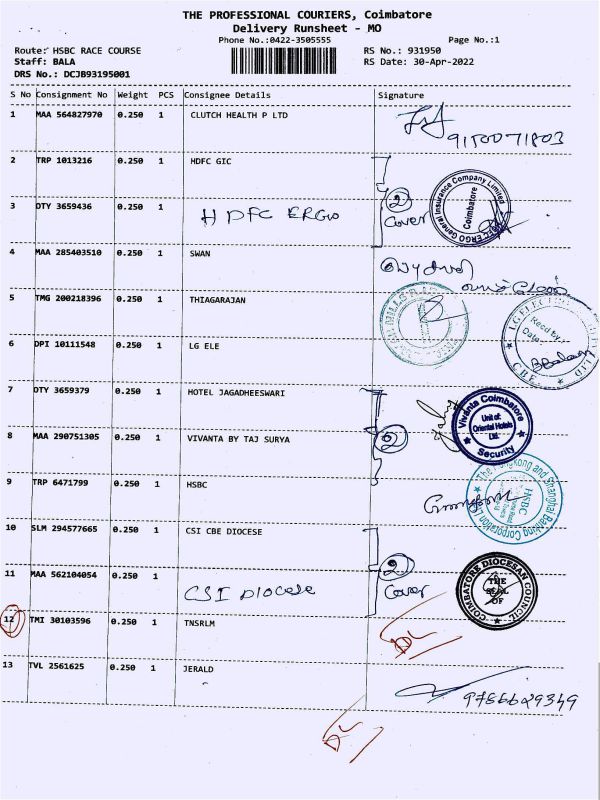 THE PROFESSIONAL COURIERS, Coimbatore
Delivery Runsheet - MO
Phone No.:0422-3505555 Page No.:1
Route: HSBC RACE COURSE RS No.: 931950
Staff: BALA RS Date: 30-Apr-2022
DRS No.: DCJB93195001
S No Consignment No Weight PCS Consignee Details Signature
1 MAA 564827970 0.250 1 CLUTCH HEALTH P LTD
9150071803
2 TRP 1013216 0.250 1 HDFC GIC
2
3 DTY 3659436 0.250 1 HDFC ERGO Cover
HDFC ERGO General Insurance Company Limited
Coimbatore
4 MAA 285403510 0.250 1 SWAN
5 TMG 200218396 0.250 1 THIAGARAJAN
Recd by
Date
BBalaji
CBE
6 DPI 10111548 0.250 1 LG ELE
7 DTY 3659379 0.250 1 HOTEL JAGADHEESWARI
Vivanta Coimbatore
Unit of:
Oriental Hotels
Ltd.
Security
8 MAA 290751305 0.250 1 VIVANTA BY TAJ SURYA
2
9 TRP 6471799 0.250 1 HSBC
The Hongkong and Shanghai Banking Corporation
HSBC
10 SLM 294577665 0.250 1 CSI CBE DIOCESE
2
11 MAA 562104054 0.250 1 CSI DIOCESE Cover
COIMBATORE DIOCESAN COUNCIL
THE
SEAL
OF
12 TMI 30103596 0.250 1 TNSRLM
DL
13 TVL 2561625 0.250 1 JERALD
9786629349
DL